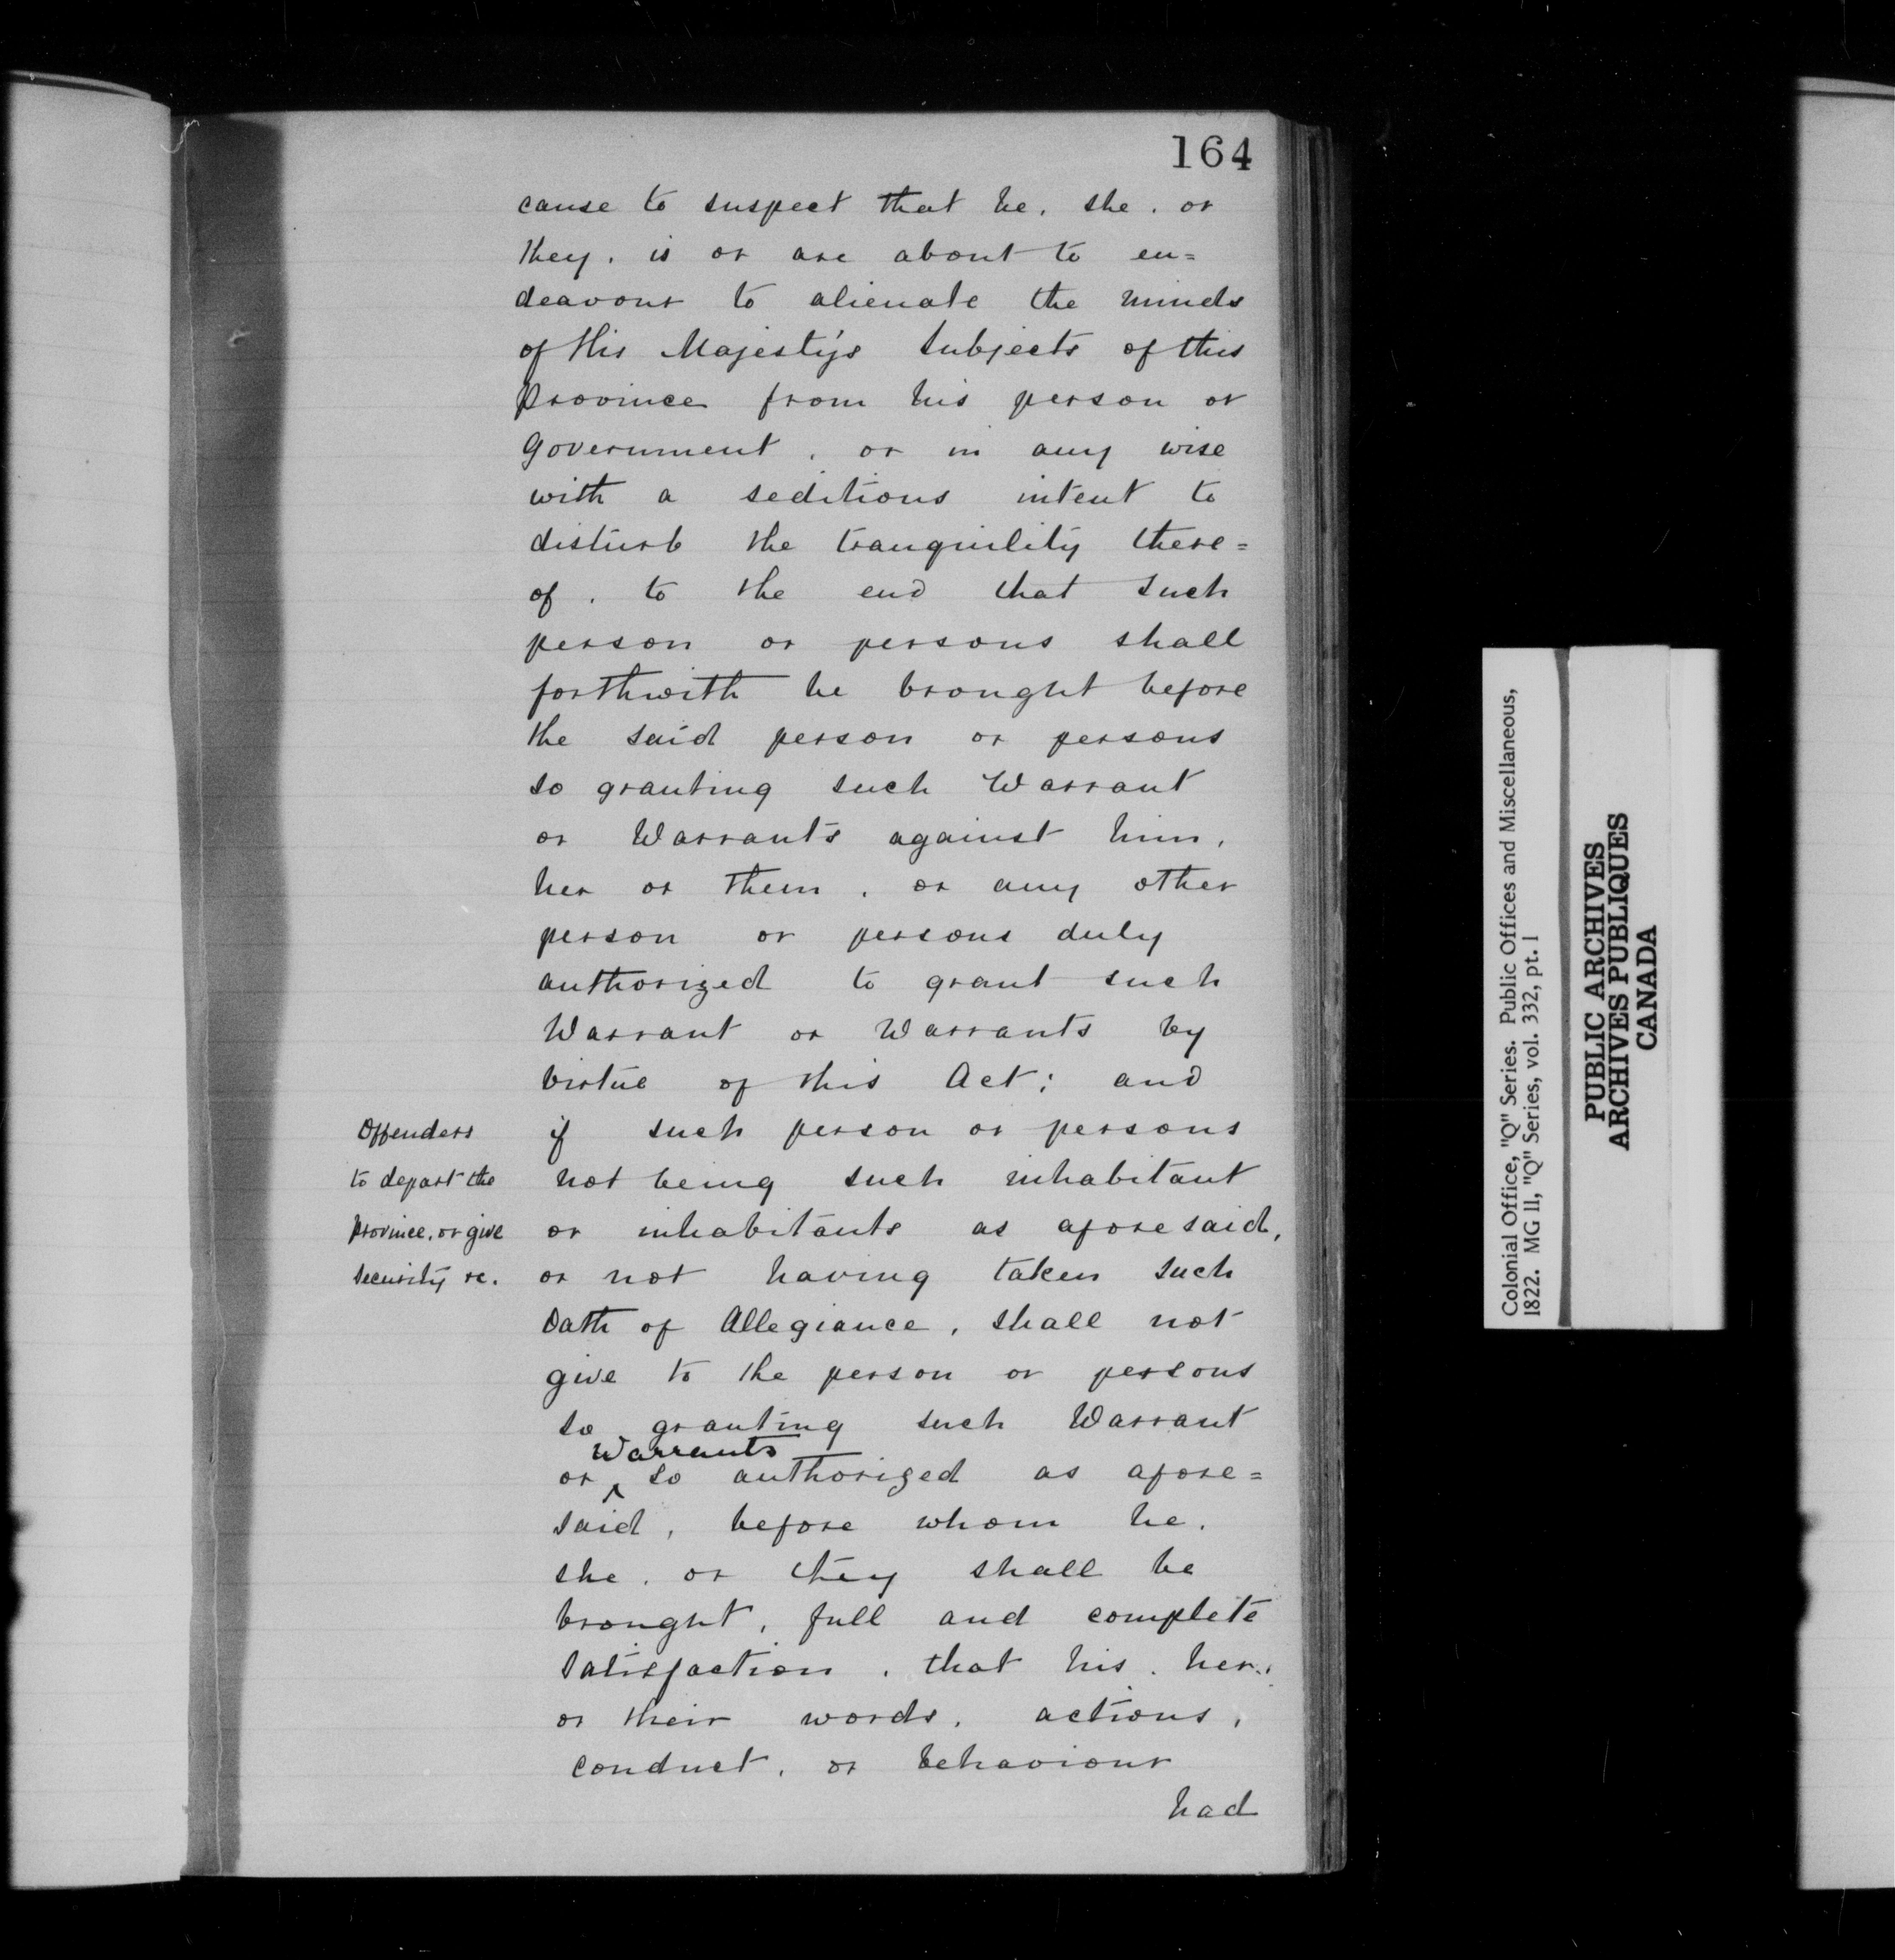 164
cause to suspect that he, she, or
they, is or are about to en=
deavour to alienate the minds
of His Majesty's Subjects of this
Province from his person or
Government, or in any wise
with a seditious intent to
disturb the tranquility there=
of, to the end that such
person or persons shall
forthwith be brought before
the said person or persons
so granting such Warrant
or Warrants against him,
her or them, or any other
person or persons duly
authorized to grant such
Warrant or Warrants by
virtue of this Act; and
Offenders
to depart the
Province, or give
Security &c.
if such person or persons
not being such inhabitant
or inhabitants as aforesaid,
or not having taken such
Oath of Allegiance, shall not
give to the person or persons
so granting such Warrant
Warrants
or ^ so authorized as afore=
said, before whom he,
she, or they shall be
brought, full and complete
Satisfaction, that his, her,
or their words, actions,
conduct, or behaviour
had
Colonial Office, "Q" Series. Public Offices and Miscellaneous,
1822. MG 11, "Q" Series, vol. 332, pt. 1
PUBLIC ARCHIVES
ARCHIVES PUBLIQUES
CANADA